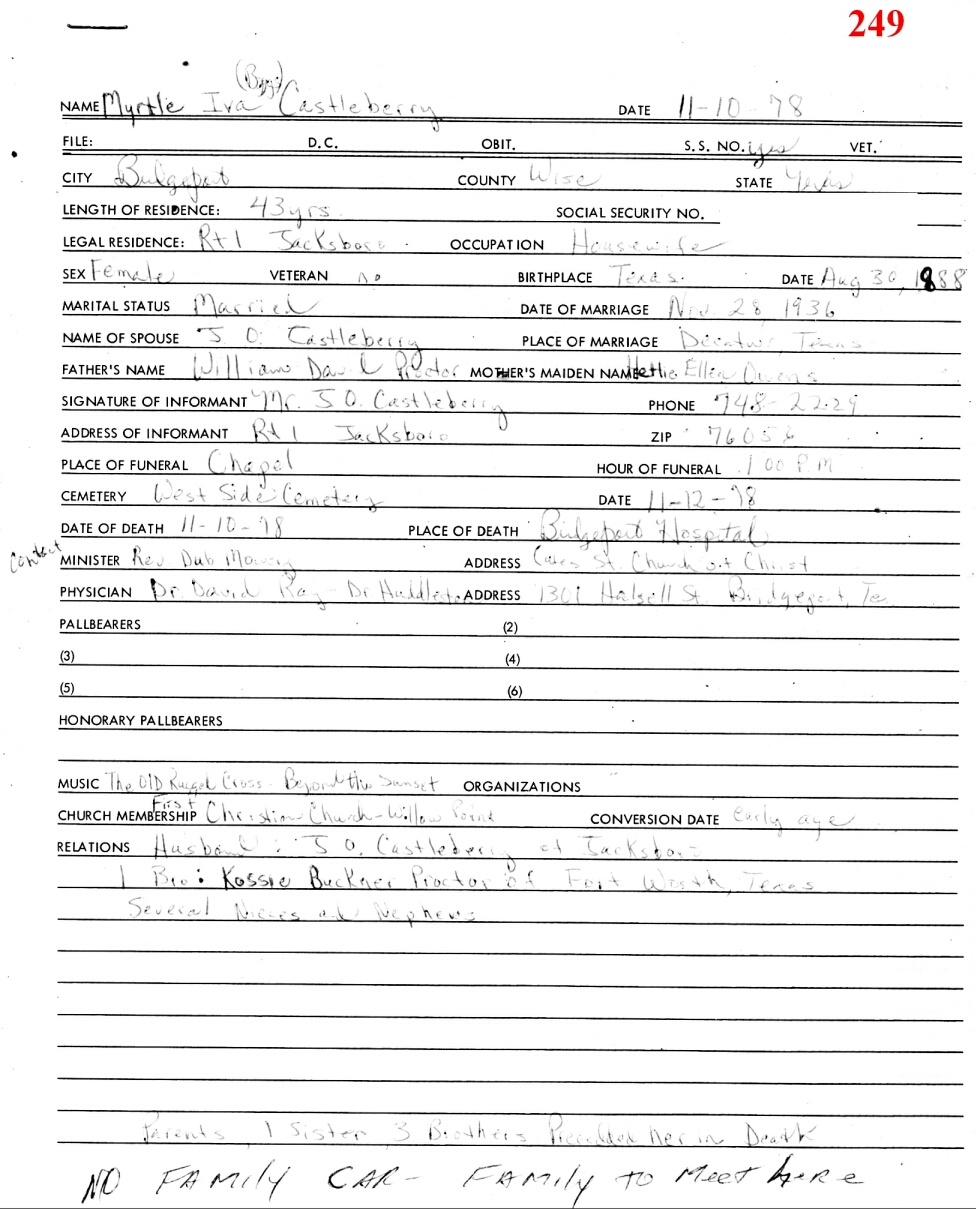 249
NAME Myrtle Iva Castleberry DATE 11-10-78
FILE: D.C. OBIT. S.S. NO. yes VET.
CITY Bridgeport COUNTY Wise STATE Texas
LENGTH OF RESIDENCE: 43 yrs. SOCIAL SECURITY NO.
LEGAL RESIDENCE: Rt 1 Jacksboro OCCUPATION Housewife
SEX Female VETERAN no BIRTHPLACE Texas. DATE Aug 30, 1888
MARITAL STATUS Married DATE OF MARRIAGE Nov 28, 1936
NAME OF SPOUSE J. O. Castleberry PLACE OF MARRIAGE Decatur, Texas
FATHER'S NAME William David Proctor MOTHER'S MAIDEN NAME Hettie Ellen Owens
SIGNATURE OF INFORMANT Mr. J O. Castleberry PHONE 748-2229
ADDRESS OF INFORMANT Rt 1 Jacksboro ZIP 76056
PLACE OF FUNERAL Chapel HOUR OF FUNERAL 1:00 P.M
CEMETERY West Side Cemetery DATE 11-12-78
DATE OF DEATH 11-10-78 PLACE OF DEATH Bridgeport Hospital
Contact MINISTER Rev Dub Mowery ADDRESS St. Church of Christ
PHYSICIAN Dr. David Ray - Dr Huddleston ADDRESS 1301 Halsell St. Bridgeport, Te
PALLBEARERS (2)
(3) (4)
(5) (6)
HONORARY PALLBEARERS
MUSIC The Old Rugged Cross - Beyond the Sunset ORGANIZATIONS
CHURCH MEMBERSHIP First Christian Church - Willow Point CONVERSION DATE early age
RELATIONS Husband: J O. Castleberry of Jacksboro
1 Bro: Kossie Buckner Proctor of Fort Worth, Texas
Several Nieces and Nephews
Parents, 1 Sister, 3 Brothers Preceded her in Death
NO FAMILY CAR - FAMILY TO MEET here